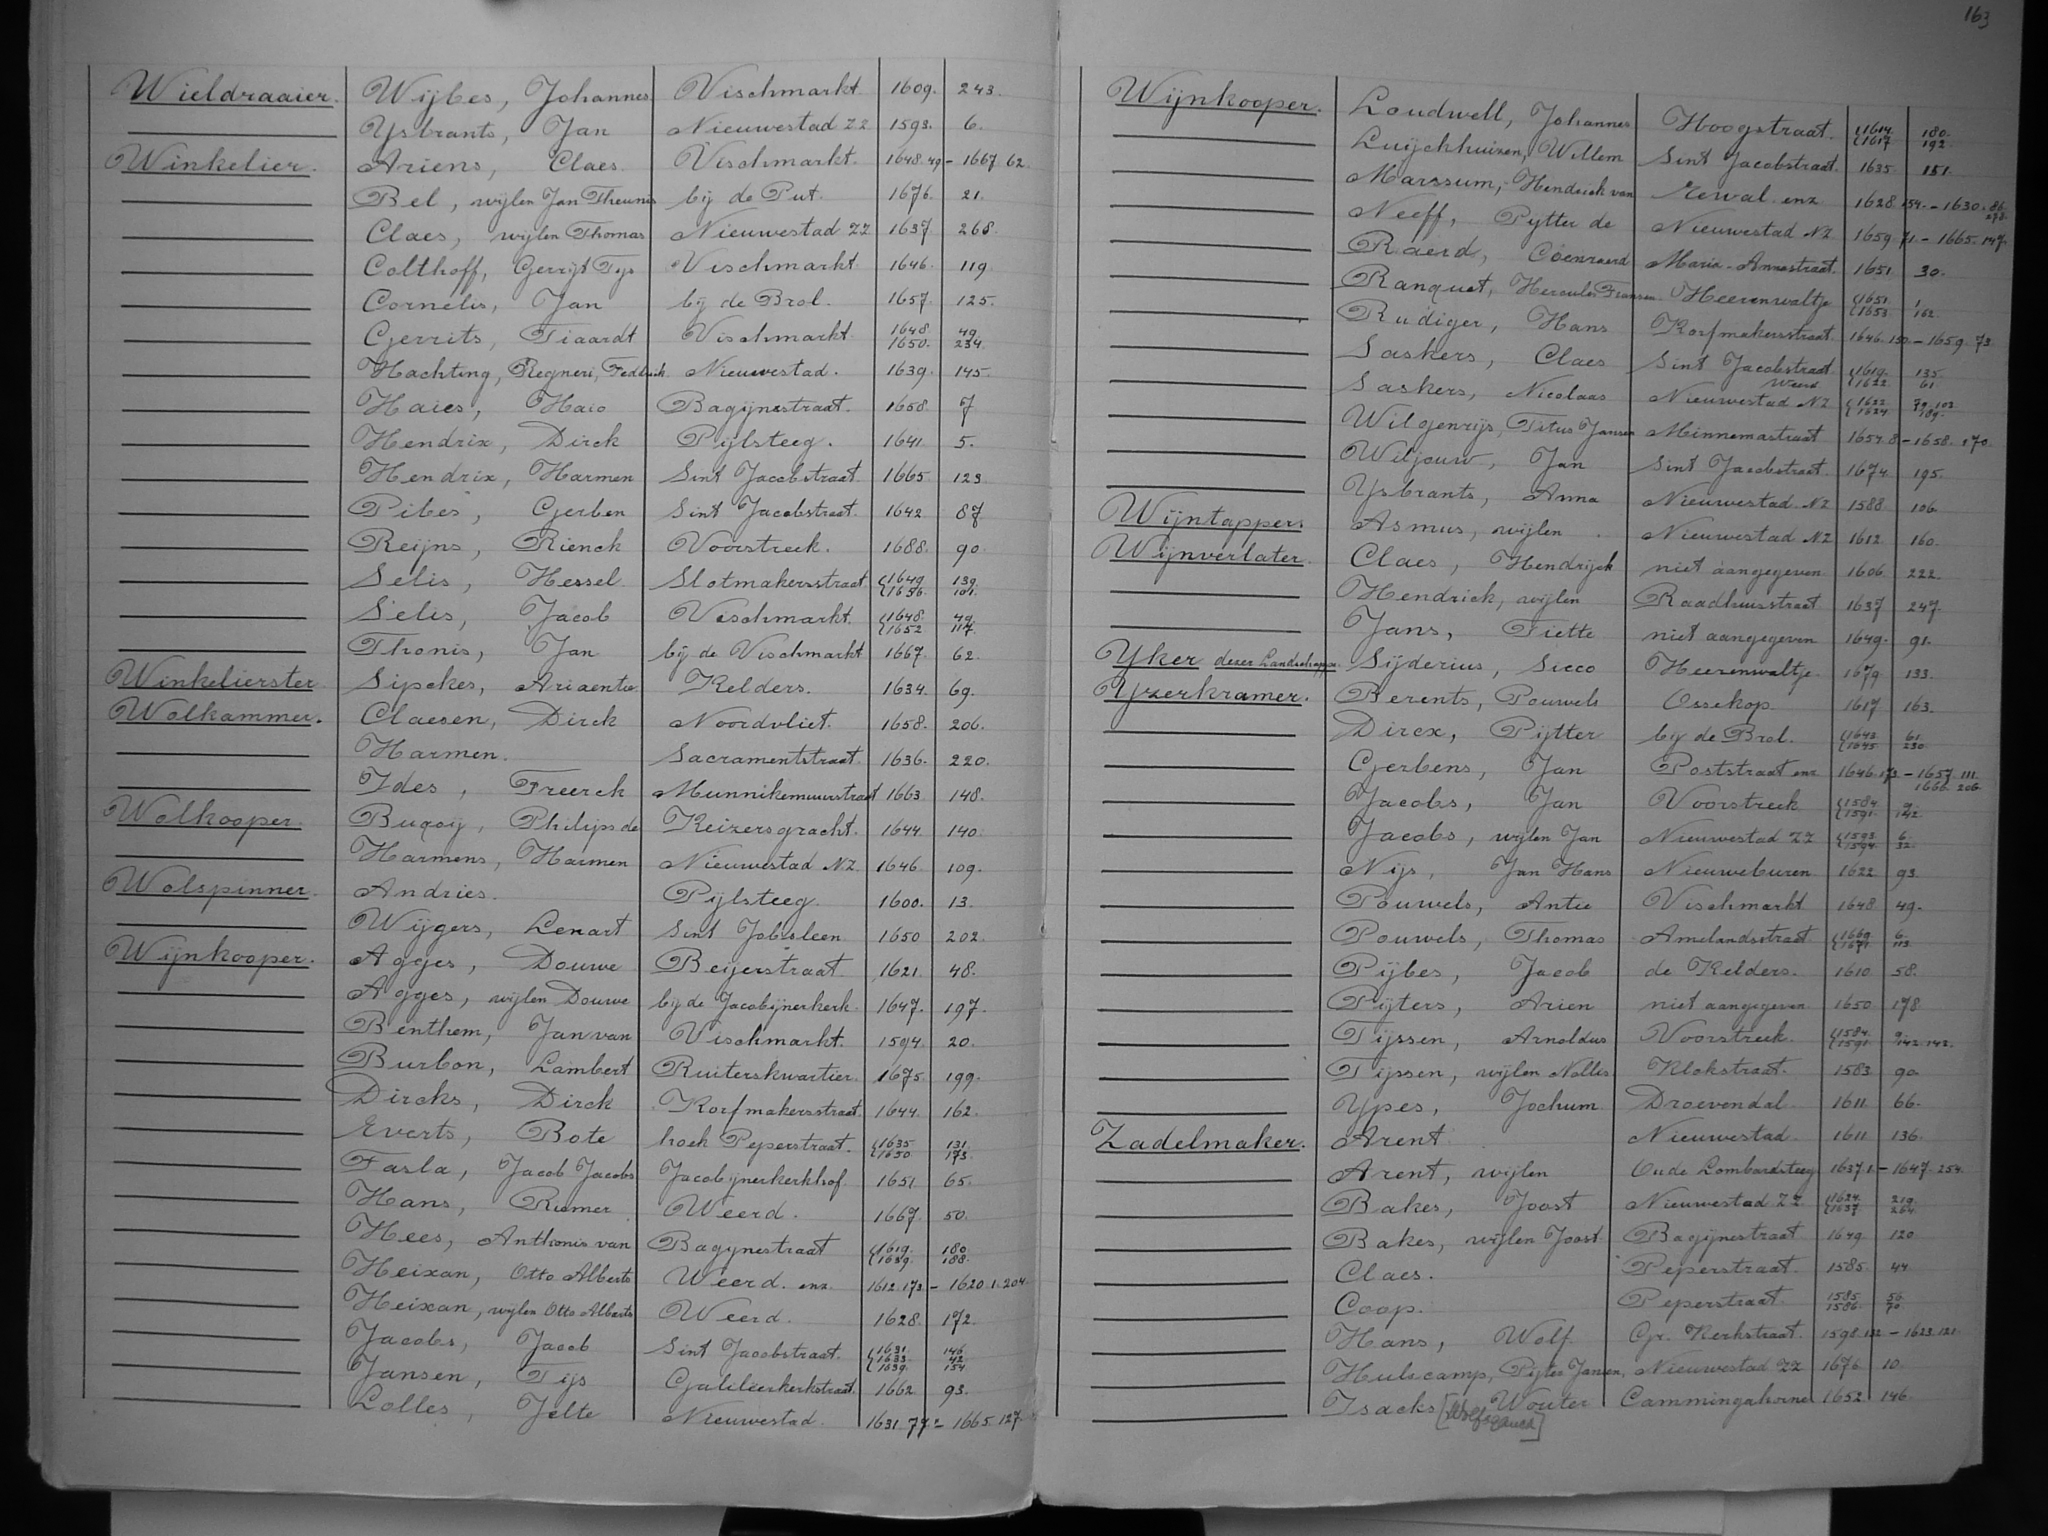 163
Wieldraaier. Wijbes, Johannes Vischmarkt 1609. 243.
Ysbrants, Jan Nieuwestad ZZ 1593. 6.
Winkelier. Ariens, Claes. Vischmarkt. 1648.49 - 1667.62.
Bel, wijlen Jan Theunis bij de Put. 1676. 21.
Claes, wijlen Thomas Nieuwestad ZZ 1637. 268.
Colthoff, Gerrijt Tijs Vischmarkt 1646. 119
Cornelis, Jan bij de Brol. 1657. 125.
Gerrits, Tiaardt Vischmarkt 1648. 49. 1650. 234.
Hachting, Regneri, Fedrik Nieuwestad. 1639. 145.
Haies, Haio Bagijnestraat. 1658. 7
Hendrix, Dirck Pijlsteeg. 1641. 5.
Hendrix, Harmen Sint Jacobstraat. 1665. 123
Pibes, Gerben Sint Jacobstraat. 1642 87.
Reijns, Rienck Voorstreek. 1688. 90.
Selis, Hessel Slotmakersstraat 1649. 139. 1656. 101.
Selis, Jacob Vischmarkt. 1648. 49. 1652 117.
Thonis, Jan bij de Vischmarkt 1667. 62.
Winkelierster Sipckes, Ariaentie. Kelders. 1634. 69.
Wolkammer. Claesen, Dirck Noordvliet. 1658. 206.
Harmen. Sacramentstraat 1636. 220.
Ides, Freerck Munnikemuurstraat 1663 148.
Wolkooper. Buqoij, Philips de Keizersgracht. 1644. 140.
Harmens, Harmen Nieuwestad NZ. 1646. 109.
Wolspinner. Andries. Pijlsteeg. 1600. 13.
Wijgers, Lenart Sint Jobsleen 1650 202.
Wijnkooper. Agges, Douwe Beijerstraat. 1621. 48.
Agges, wijlen Douwe bij de Jacobijnerkerk. 1647. 197.
Benthem, Jan van Vischmarkt. 1594. 20.
Burbon, Lambert Ruiterskwartier. 1675. 199.
Dircks, Dirck Korfmakersstraat. 1644. 162.
Everts, Bote hoek Peperstraat. 1635. 131. 1650 173.
Fasla, Jacob Jacobs Jacobijnerkerkhof 1651 65.
Hans, Riemer Weerd. 1667. 50.
Hees, Anthonis van Bagijnestraat 1619. 180. 1639. 188.
Heixan, Otto Alberts Weerd. enz. 1612.173 - 1620.1.204.
Heixan, wijlen Otto Alberts Weerd. 1628. 172.
Jacobs, Jacob Sint Jacobstraat. 1631. 146. 1633. 42. 1639. 154.
Jansen, Tijs Galileerkerkstraat. 1662 93.
Lolles, Jelte Nieuwestad. 1631.77 - 1665.127.
Wijnkooper. Loudwell, Johannes Hoogstraat. 1614. 180. 1617 192.
Luijckhuizen, Willem Sint Jacobstraat. 1635. 151.
Marssum, Hendrick van Eewal. enz 1628.154. - 1630. 86. 278.
Neeff, Pijtter de Nieuwestad NZ 1659.71. - 1665.147.
Raerd, Coenraerd Maria-Annastraat. 1651. 30.
Ranquet, Hercules Fransen. Heerenwaltje 1651. 1. 1653. 162.
Rudiger, Hans Korfmakersstraat. 1646.150. - 1659.73.
Saskers, Claes Sint Jacobstraat. Weerd 1619. 135. 1622. 61.
Saskers, Nicolaas Nieuwestad NZ 1622. 79.102 1624 189.
Wilgenrijs, Titus Jansen Minnemastraat 1657.8 - 1658.170.
Wiljouw, Jan Sint Jacobstraat. 1674. 195.
Ysbrants, Anna Nieuwestad NZ 1588. 106.
Wijntapper. Asmus, wijlen Nieuwestad NZ 1612. 160.
Wijnverlater. Claes, Hendrijck niet aangegeven 1606. 222.
Hendrick, wijlen Raadhuisstraat 1637 247.
Jans, Tiette niet aangegeven 1649. 91.
Yker dezer Landschappe. Sijderius, Sicco Heerenwaltje. 1679 133.
Yzerkramer. Berents, Pouwels Ossekop. 1617 163.
Dircx, Pijtter bij de Brol. 1643. 61. 1645 230.
Gerbens, Jan Poststraat enz 1646.173. - 1657.111. 1666. 206.
Jacobs, Jan Voorstreek 1584. 9. 1591. 142.
Jacobs, wijlen Jan Nieuwestad ZZ 1593. 6. 1594. 32.
Nijs, Jan Hans Nieuweburen 1622. 93.
Pouwels, Antie Vischmarkt 1648. 49.
Pouwels, Thomas Amelandsstraat 1669. 6. 1671. 113.
Pijbes, Jacob de Kelders. 1610. 58.
Pijters, Arien niet aangegeven 1650. 178
Tijssen, Arnoldus Voorstreek. 1584. 9. 1591. 142.142.
Tijssen, wijlen Nollis Klokstraat. 1583 90.
Ypes, Jochum Droevendal. 1611. 66.
Zadelmaker. Arent Nieuwestad. 1611 136.
Arent, wijlen Oude Lombardsteeg 1637.1. - 1647.254.
Bakes, Joost Nieuwestad ZZ. 1624. 219. 1637. 264.
Bakes, wijlen Joost Bagijnestraat 1649. 120.
Claes. Peperstraat. 1585. 44
Coop. Peperstraat. 1585. 56. 1586. 70.
Hans, Wolf Gr. Kerkstraat. 1598.132 - 1623.121.
Hulscamp, Pijter Jansen. Nieuwestad ZZ 1676. 10.
Isacks Wouter Cammingahorne 1652. 146.